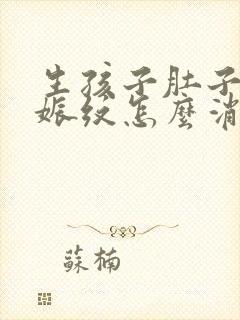 生孩子肚子
娠纹怎麼消
蘇楠